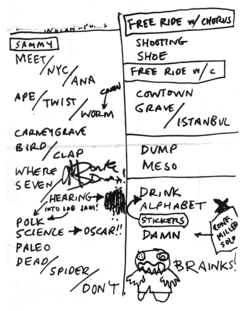 SAMMY
MEET/
NYC/
ANA
APE/
TWIST/
WORM
CARNEYGRAVE
BIRD/
CLAP
WHERE
SEVEN
HEARING
INTO LAB JAM!
POLK
SCIENCE → OSCAR!!
PALEO
DEAD/
SPIDER/
DON'T
FREE RIDE W/ CHORUS
SHOOTING
SHOE
FREE RIDE W/C
COWTOWN
GRAVE/
ISTANBUL
DUMP
MESO
DRINK
ALPHABET
STICKERS
DAMN
MILLER
SOLO
BRAINKS!